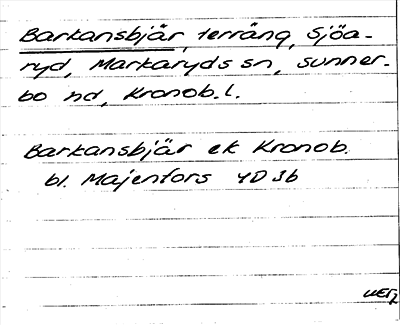 Barkansbjär, terräng, Sjöa-
ryd, Markaryds sn, Sunner-
bo hd, Kronob. l.
Barkansbjär ek Kronob.
bl. Majenfors 4D 3b